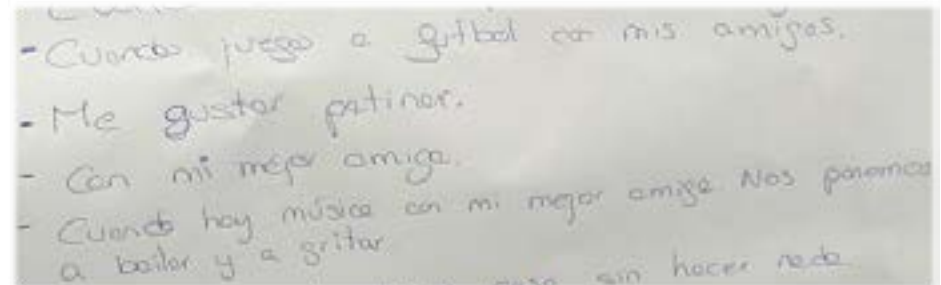 - Cuando juego a futbol con mis amigos.
- Me gustar patinar.
- Con mi mejor amiga.
- Cuando hay música con mi mejor amiga Nos ponemos
a bailar y a gritar
sin hacer nada